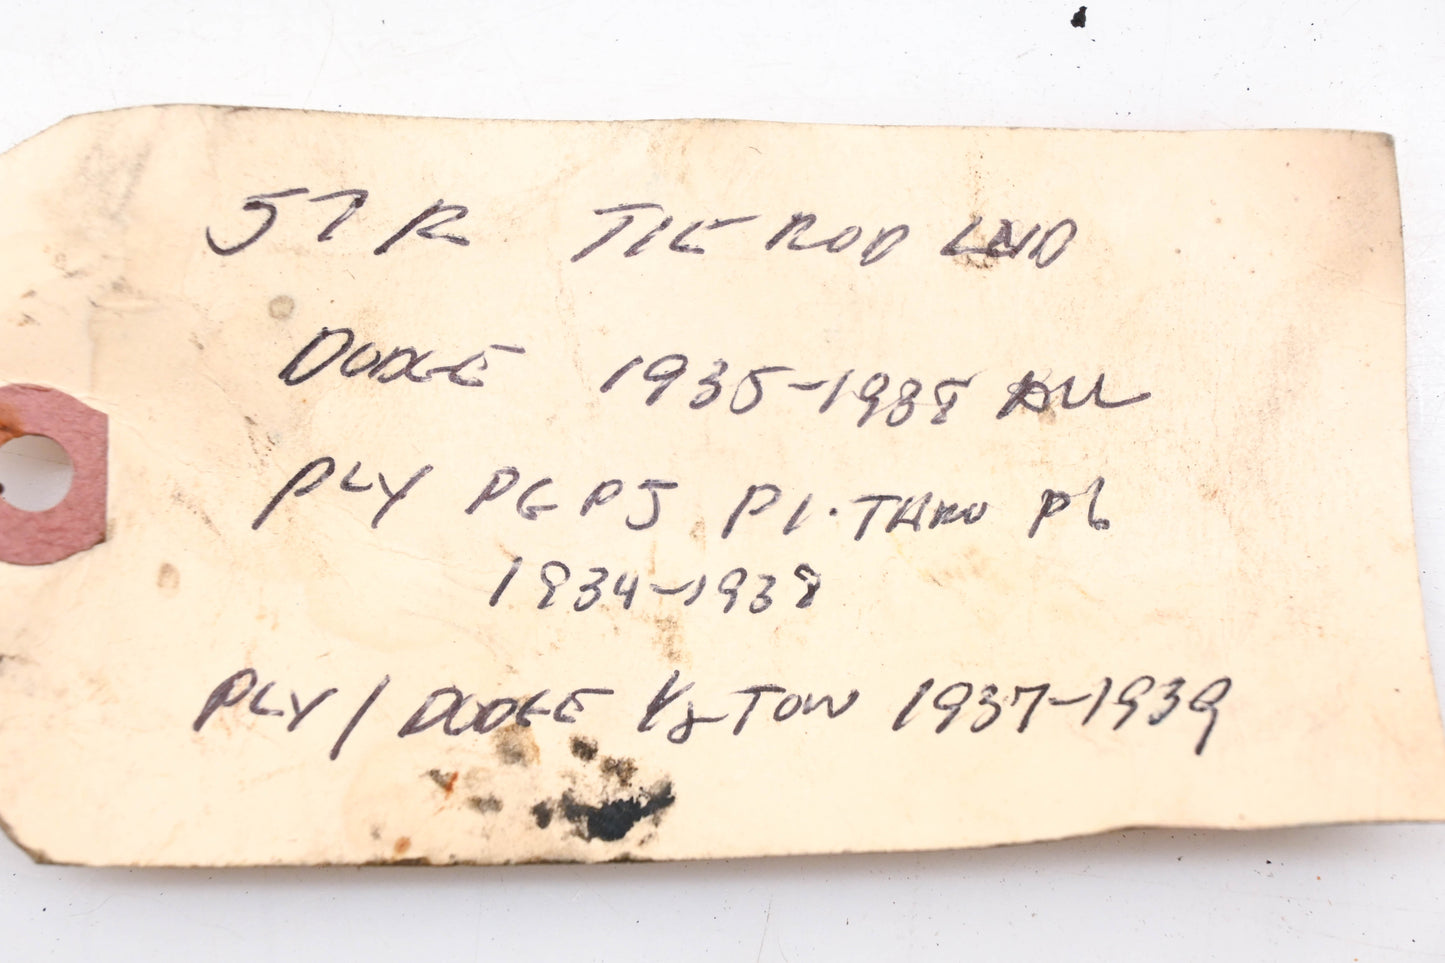 57R TIE ROD END
DODGE 1935-1938 ALL
PLY PG PJ P1-THRU P6
1934-1938
PLY / DODGE 1/2 TON 1937-1939